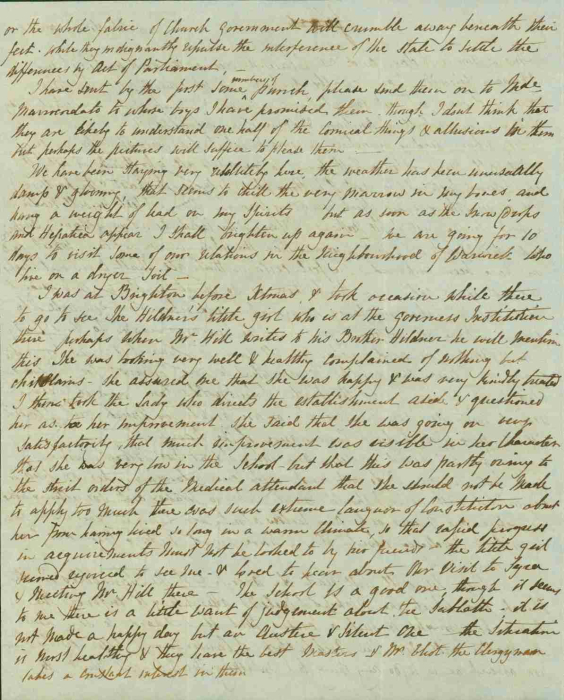 or the whole fabric of Church Government will crumble away beneath their
feet. while they indignantly repulse the interference of the State to settle the
differences by Act of Parliament.
I have sent by the post some numbers of Punch, please send them on to Mde
Mavrocordato to whose boys I have promised them, though I dont think that
they are likely to understand one half of the comical things & allusions in them
but perhaps the pictures will suffice to please them —
We have been staying very here, the weather has been unusually
damp & gloomy, that seems to chill the very marrow in my bones and
hang a weight of lead on my Spirits but as soon as the Snow Drops
and Hepatica appear I shall brighten up again — we are going for 10
days to visit some of our relations in the Neighbourhood of Warwick who
live on a dryer soil —
I was at Brighton before Xtmas, & took occasion while there
to go to see The Hildners' little girl who is at the Governess Institution
there perhaps when Mr Hill writes to his Brother Hildner he will mention
this She was looking very well & healthy complained of nothing but
chilblains - she assured me that she was happy & was very kindly treated
I then took the Lady who directs the establishment aside & questioned
her as to her improvement, she said that she was going on very
satisfactorily, that much improvement was visible in her Character
that she was very low in the School but that this was partly owing to
the strict orders of the Medical attendant that she should not be made
to apply too much there was such extreme languor of Constitution about
her from having lived so long in a warm Climate, so that rapid progress
in acquirements must not be looked to by her friends - the little girl
seemed rejoiced to see me - & loved to hear about our visit to Syra
& Meeting Mr Hill there — The School is a good one, though it seems
to me there is a little want of judgement about the Sabbath - it is
not made a happy day but an Austere & Silent One — the Situation
is most healthy & they have the best Masters & Mr the Clergyman
takes a constant interest in them